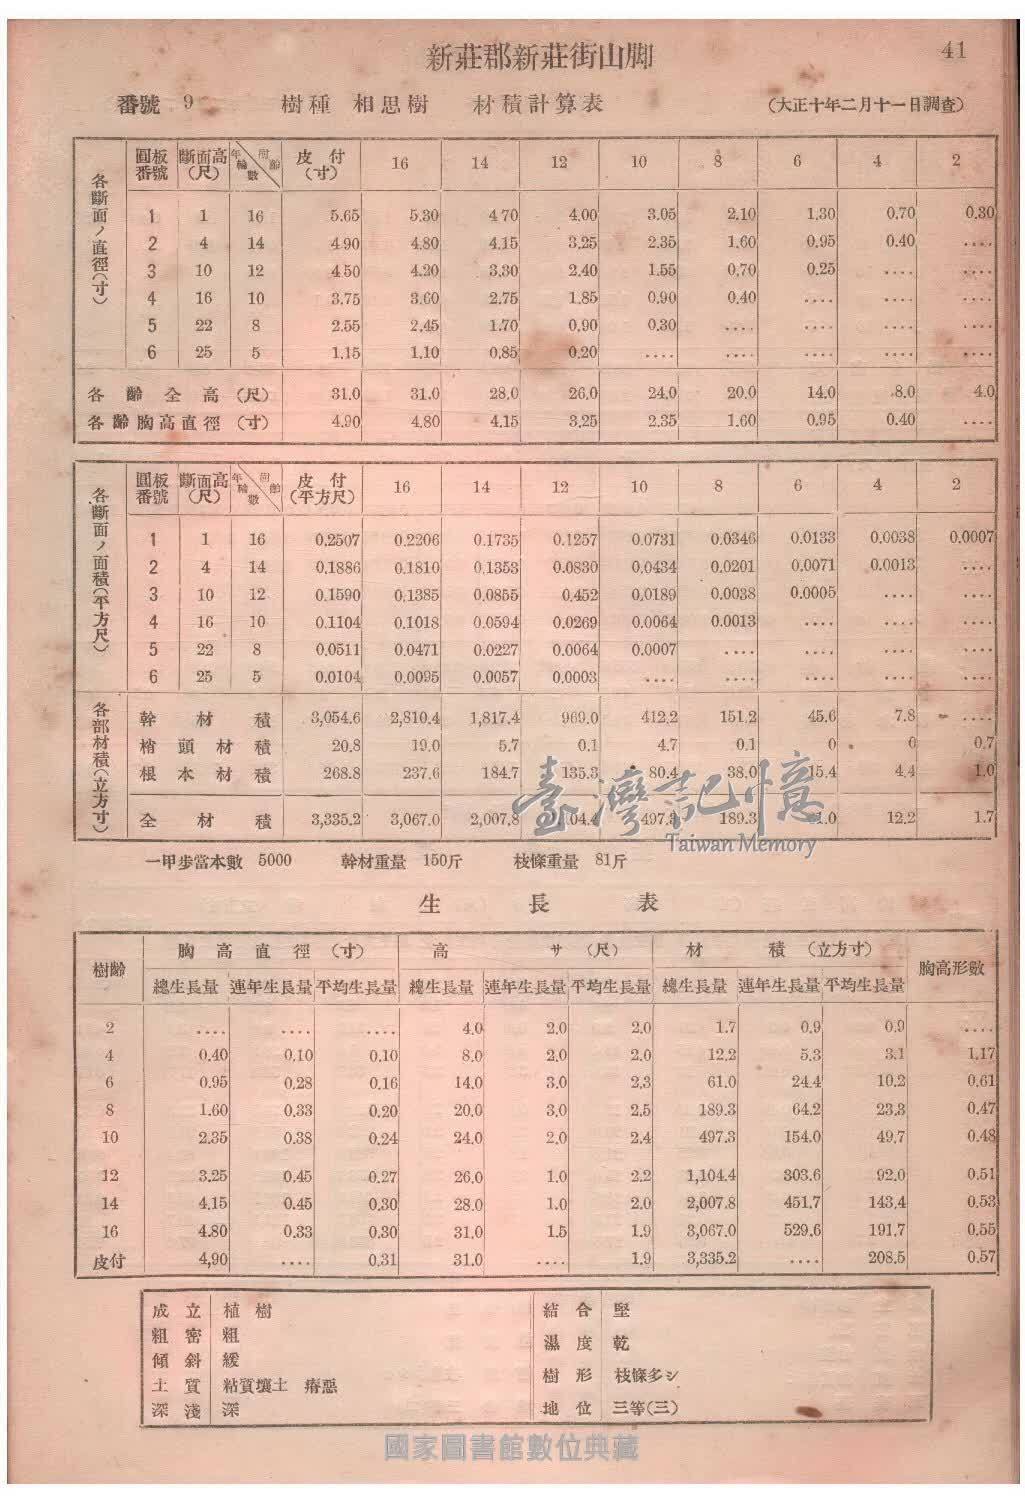 新莊郡新莊街山脚
41
番號 9 樹種 相思樹 材積計算表 (大正十年二月十一日調査)
各斷面ノ直徑(寸)
圓板番號 斷面高(尺) 年輪數 樹齡 皮付(寸) 16 14 12 10 8 6 4 2
1 1 16 5.65 5.30 4.70 4.00 3.05 2.10 1.30 0.70 0.30
2 4 14 4.90 4.80 4.15 3.25 2.35 1.60 0.95 0.40 ....
3 10 12 4.50 4.20 3.30 2.40 1.55 0.70 0.25 .... ....
4 16 10 3.75 3.60 2.75 1.85 0.90 0.40 .... .... ....
5 22 8 2.55 2.45 1.70 0.90 0.30 .... .... .... ....
6 25 5 1.15 1.10 0.85 0.20 .... .... .... .... ....
各齡全高(尺) 31.0 31.0 28.0 26.0 24.0 20.0 14.0 8.0 4.0
各齡胸高直徑(寸) 4.90 4.80 4.15 3.25 2.35 1.60 0.95 0.40 ....
各斷面ノ面積(平方尺)
圓板番號 斷面高(尺) 年輪數 樹齡 皮付(平方尺) 16 14 12 10 8 6 4 2
1 1 16 0.2507 0.2206 0.1735 0.1257 0.0731 0.0346 0.0133 0.0038 0.0007
2 4 14 0.1886 0.1810 0.1353 0.0830 0.0434 0.0201 0.0071 0.0013 ....
3 10 12 0.1590 0.1385 0.0855 0.452 0.0189 0.0038 0.0005 .... ....
4 16 10 0.1104 0.1018 0.0594 0.0269 0.0064 0.0013 .... .... ....
5 22 8 0.0511 0.0471 0.0227 0.0064 0.0007 .... .... .... ....
6 25 5 0.0104 0.0095 0.0057 0.0003 .... .... .... .... ....
各部材積(立方寸)
幹材積 3,054.6 2,810.4 1,817.4 969.0 412.2 151.2 45.6 7.8 ....
梢頭材積 20.8 19.0 5.7 0.1 4.7 0.1 0 0 0.7
根本材積 268.8 237.6 184.7 135.3 80.4 38.0 15.4 4.4 1.0
全材積 3,335.2 3,067.0 2,007.8 104.4 497.3 189.3 1.0 12.2 1.7
臺灣記憶
Taiwan Memory
一甲步當本數 5000 幹材重量 150斤 枝條重量 81斤
生長表
樹齡 胸高直徑(寸) 高サ(尺) 材積(立方寸) 胸高形數
總生長量 連年生長量 平均生長量 總生長量 連年生長量 平均生長量 總生長量 連年生長量 平均生長量
2 .... .... .... 4.0 2.0 2.0 1.7 0.9 0.9 ....
4 0.40 0.10 0.10 8.0 2.0 2.0 12.2 5.3 3.1 1.17
6 0.95 0.28 0.16 14.0 3.0 2.3 61.0 24.4 10.2 0.61
8 1.60 0.33 0.20 20.0 3.0 2.5 189.3 64.2 23.3 0.47
10 2.35 0.38 0.24 24.0 2.0 2.4 497.3 154.0 49.7 0.48
12 3.25 0.45 0.27 26.0 1.0 2.2 1,104.4 303.6 92.0 0.51
14 4.15 0.45 0.30 28.0 1.0 2.0 2,007.8 451.7 143.4 0.53
16 4.80 0.33 0.30 31.0 1.5 1.9 3,067.0 529.6 191.7 0.55
皮付 4.90 .... 0.31 31.0 .... 1.9 3,335.2 .... 208.5 0.57
成立 植樹 結合 堅
粗密 粗 濕度 乾
傾斜 緩 樹形 枝條多シ
土質 粘質壤土 瘠惡 地位 三等(三)
深淺 深
國家圖書館數位典藏